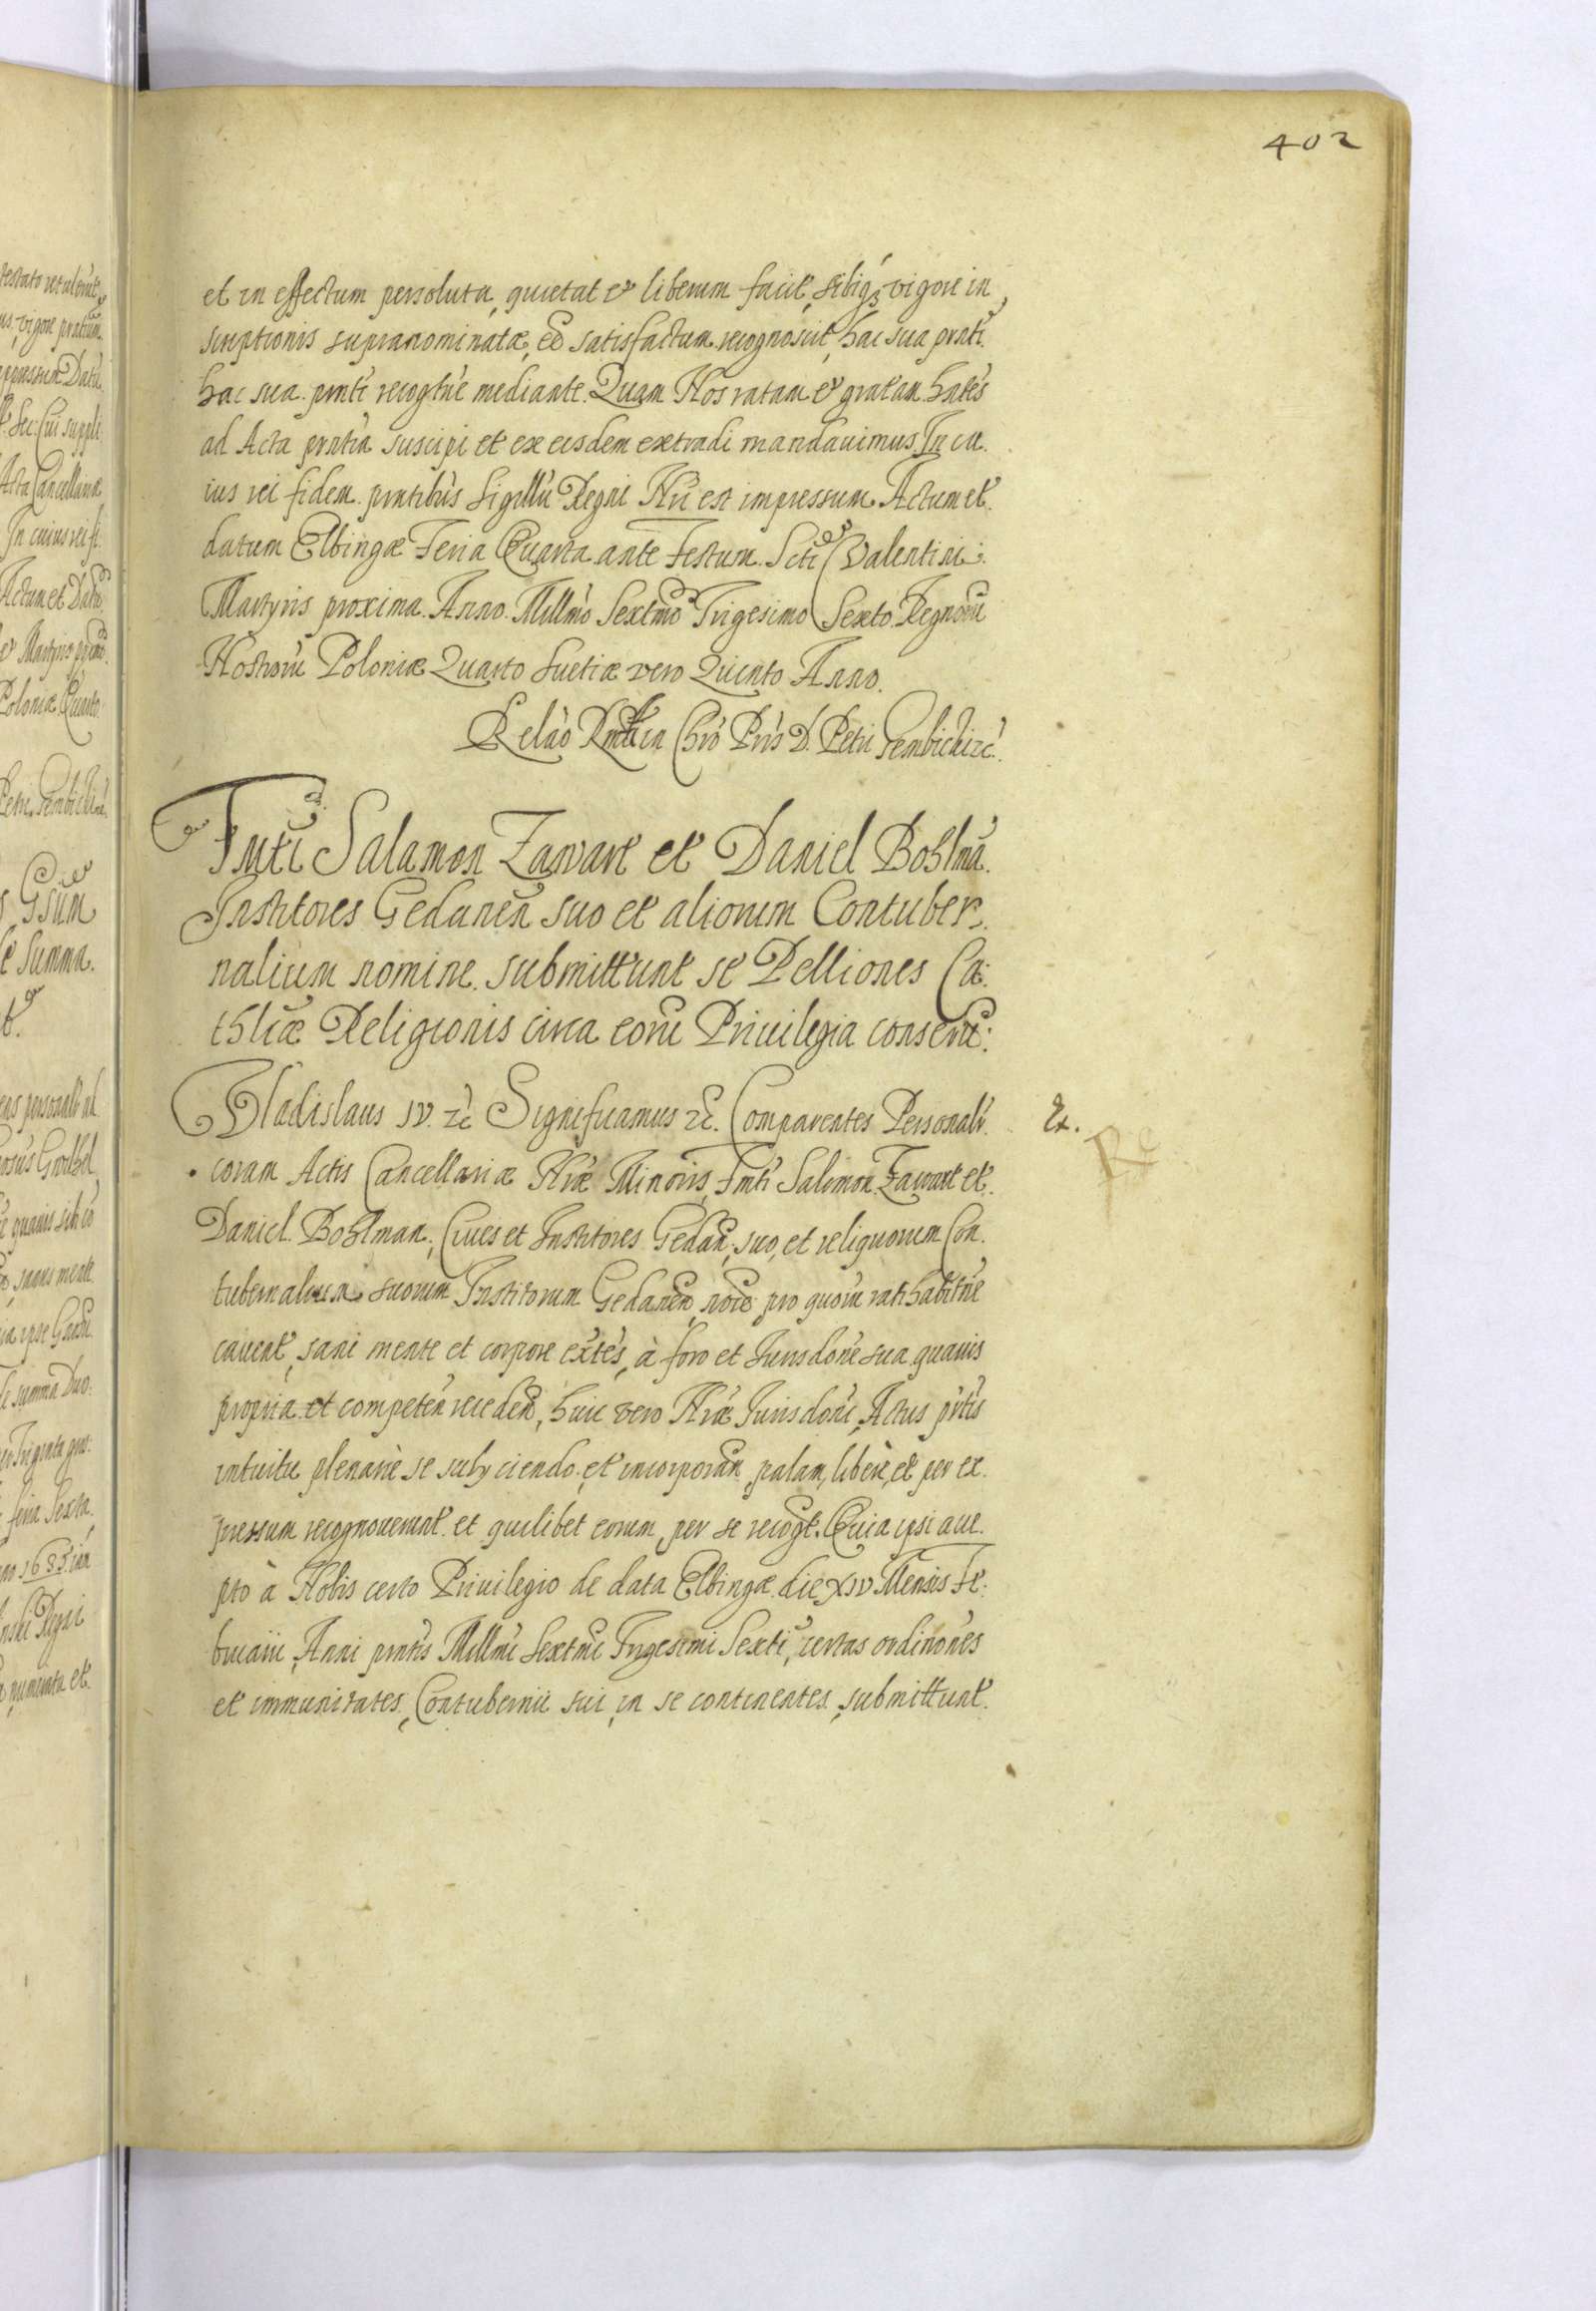 402
et in effectum persoluta, quietat et liberum facit, sibiq3 vigore in
scriptionis supranominatæ, eẽ satisfactum recognoscit, hac sua pnti
hac sua pnti recogñe mediante. Quam Nos ratam et gratam habẽs
ad Acta pñtia suscipi et ex eisdem extradi mandauimus. In cu
ius rei fidem pñtibus Sigillũ Regni Nrĩ est impressum. Actum et
datum Elbingæ Feria Quarta ante Festum Scti Valentini
Martyris proxima. Anno Millmo Sextmo Trigesimo Sexto. Regnorũ
Nostrorũ Poloniæ Quarto Suetiæ vero Quinto Anno.
Relão Rmi in Chro Pris D. Petri Gembicki &c.
Fmti Salamon Zawart et Daniel Bohlmã
Institores Gedanen̄ suo et aliorum Contuber
nalium nomine submittunt se Pelliones Ca
thlicæ Religionis circa eorũ Priuilegia conseru:
Vladislaus IV. &c Significamus &c. Comparentes Personalr
Ex.
Re
coram Actis Cancellariæ Nræ Minoris, Fmti Salomon Zawart et
Daniel Bohlman, Ciues et Institores Gedan̄, suo, et reliquorum Con
tubernalium suorum Institorum Gedanen̄ noĩe pro quorũ ratihabitñe
cauent, sani mente et corpore extẽs, à foro et Jurisdone sua quauis
propria et competeñ receden̄, huic vero Nræ Jurisdoni, Actus pñtis
intuitu plenariè se subijciendo et incorporan̄ palam, liberè, et per ex
pressum recognouerunt et quilibet eorum per se recogt. Quia ipsi acce
pto à Nobis certo Priuilegio de data Elbingæ die XIV Mensis Fe
bruarii, Anni pntis Millmi Sextmi Trigesimi Sexti, certas ordinones
et immunitates, Contubernii sui, in se continentes, submittunt